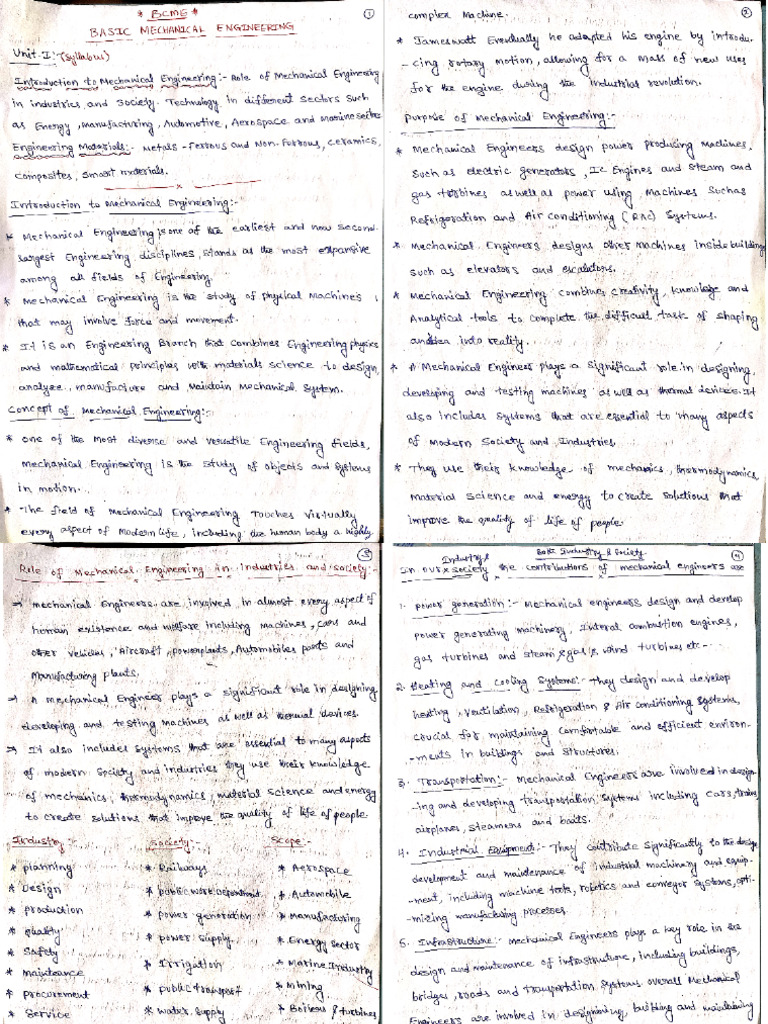 * BCME * 1
BASIC MECHANICAL ENGINEERING
Unit-I:-(Syllabus)
Introduction to Mechanical Engineering:- Role of Mechanical Engineering
in industries and Society- Technology in different sectors such
as Energy, Manufacturing, Automotive, Aerospace and Marine sectors
Engineering Materials:- Metals-Ferrous and Non-Ferrous, Ceramics,
Composites, Smart materials.
x
Introduction to Mechanical Engineering:-
* Mechanical Engineering is one of the earliest and now second-
largest Engineering disciplines, stands as the most expansive
among all fields of Engineering.
* Mechanical Engineering is the study of physical Machines
that may involve force and movement.
* It is an Engineering Branch that combines Engineering physics
and mathematical principles with materials science to design,
analyze, manufacture and Maintain Mechanical System.
Concept of Mechanical Engineering:-
* One of the Most diverse and versatile Engineering fields,
mechanical Engineering is the study of objects and systems
in motion.
* The field of Mechanical Engineering Touches virtually
every aspect of Modern life, including the human body a highly
2
complex Machine.
* Jameswatt Eventually he adapted his engine by introdu-
-cing rotary motion, allowing for a mass of new uses
for the engine during the industrial revolution.
Purpose of Mechanical Engineering:-
* Mechanical Engineers design power producing Machines,
Such as electric generators, IC Engines and steam and
gas turbines as well as power using Machines Suchas
Refrigeration and Air conditioning (RAC) Systems.
* Mechanical Engineers designs other machines inside building
such as elevators and escalators.
* Mechanical Engineering combines creativity, knowledge and
Analytical tools to complete the difficult task of shaping
an idea into reality.
* A Mechanical Engineers plays a significant role in designing,
developing and testing machines as well as thermal devices. It
also includes systems that are essential to many aspects
of modern Society and Industries.
* They use their knowledge of mechanics, thermodynamics,
Material science and energy to create solutions that
improve the quality of life of people.
3
Role of Mechanical Engineering in industries and society:-
→ mechanical Engineers are involved in almost every aspect of
human existence and welfare including machines, cars and
other vehicles, Aircraft, powerplants, Automobiles parts and
Manufacturing plants.
→ A Mechanical Engineer plays a significant role in designing
developing and testing machines as well as thermal devices.
→ It also includes systems that are essential to many aspects
of modern Society and industries they use their knowledge
of mechanics, thermodynamics, material science and energy
to create solutions that improve the quality of life of people.
Industry:- Society:- Scope:-
* planning * Railways * Aerospace
* Design * public work department * Automobile
* production * power generation * Manufacturing
* quality * power supply * Energy sector
* Safety * Irrigation * Marine Industry
* mainteance * public transport * Mining
* procurement * water supply * Boilers & turbines
* Service
Industry & Society 4
In our x society the contributions of mechanical engineers are
1. power generation:- Mechanical engineers design and develop
power generating machinery, Interal combustion engines,
gas turbines and steam, gas & wind turbines etc-
2. Heating and Cooling Systems:- They design and develop
heating, ventilation, Refrigeration & Air conditioning systems,
crucial for maintaining comfortable and efficient environ-
-ments in buildings and structures.
3. Transportation:- Mechanical Engineers are involved in design-
-ing and developing transportation systems including cars, trains,
airplanes, steamens and boats.
4. Industrial Equipment:- They contribute significantly to the design
development and maintenance of industrial machinery and equip-
-ment, including machine tools, robotics and conveyor systems, opti-
-mizing manufacturing processes.
5. Infrastructure:- Mechanical Engineers plays a key role in the
design and maintenance of infrastructure, including buildings,
bridges, roads and transportation systems. overall Mechanical
Engineers are involved in designing, building and maintaining